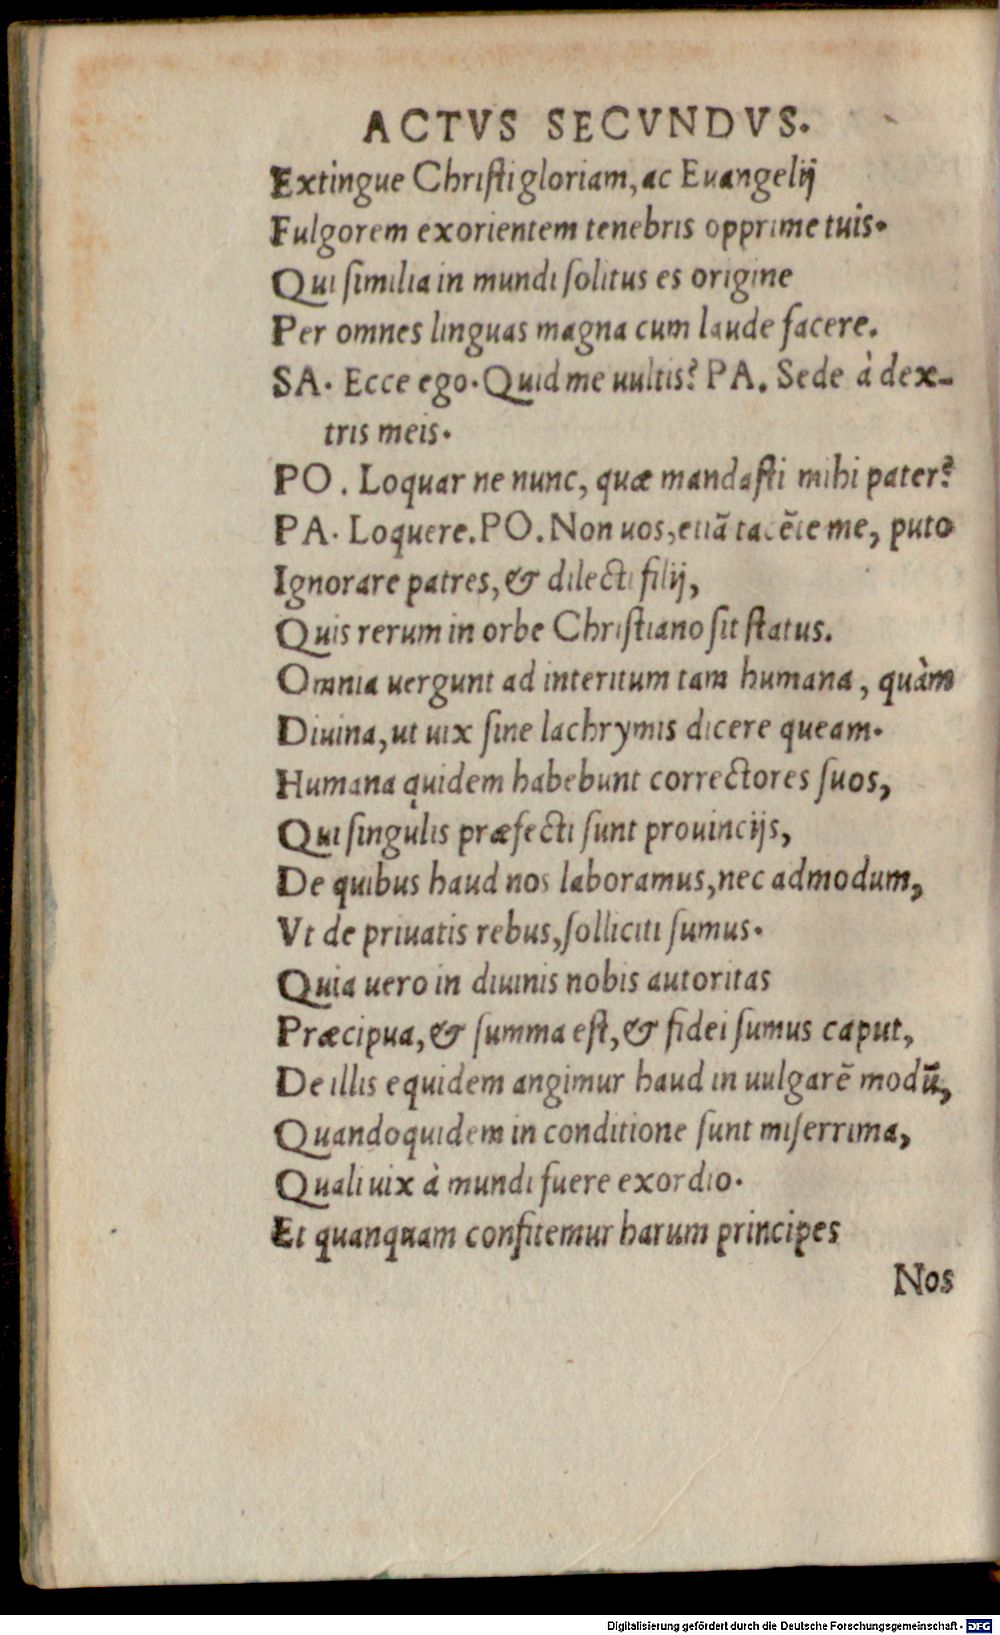 ACTVS SECVNDVS.
Extingue Chriſti gloriam, ac Euangelij
Fulgorem exorientem tenebris opprime tuis.
Qui ſimilia in mundi ſolitus es origine
Per omnes linguas magna cum laude facere.
SA. Ecce ego. Quid me uultis? PA. Sede à dex-
tris meis.
PO. Loquar ne nunc, quæ mandaſti mihi pater?
PA. Loquere. PO. Non uos, etiã tacẽte me, puto
Ignorare patres, & dilecti filij,
Quis rerum in orbe Chriſtiano ſit ſtatus.
Omnia uergunt ad interitum tam humana, quàm
Diuina, ut uix ſine lachrymis dicere queam.
Humana quidem habebunt correctores ſuos,
Qui ſingulis præfecti ſunt prouincijs,
De quibus haud nos laboramus, nec admodum,
Vt de priuatis rebus, ſolliciti ſumus.
Quia uero in diuinis nobis autoritas
Præcipua, & ſumma eſt, & fidei ſumus caput,
De illis equidem angimur haud in uulgarẽ modũ,
Quandoquidem in conditione ſunt miſerrima,
Quali uix à mundi fuere exordio.
Et quanquam confitemur harum principes
Nos
Digitalisierung gefördert durch die Deutsche Forschungsgemeinschaft - DFG